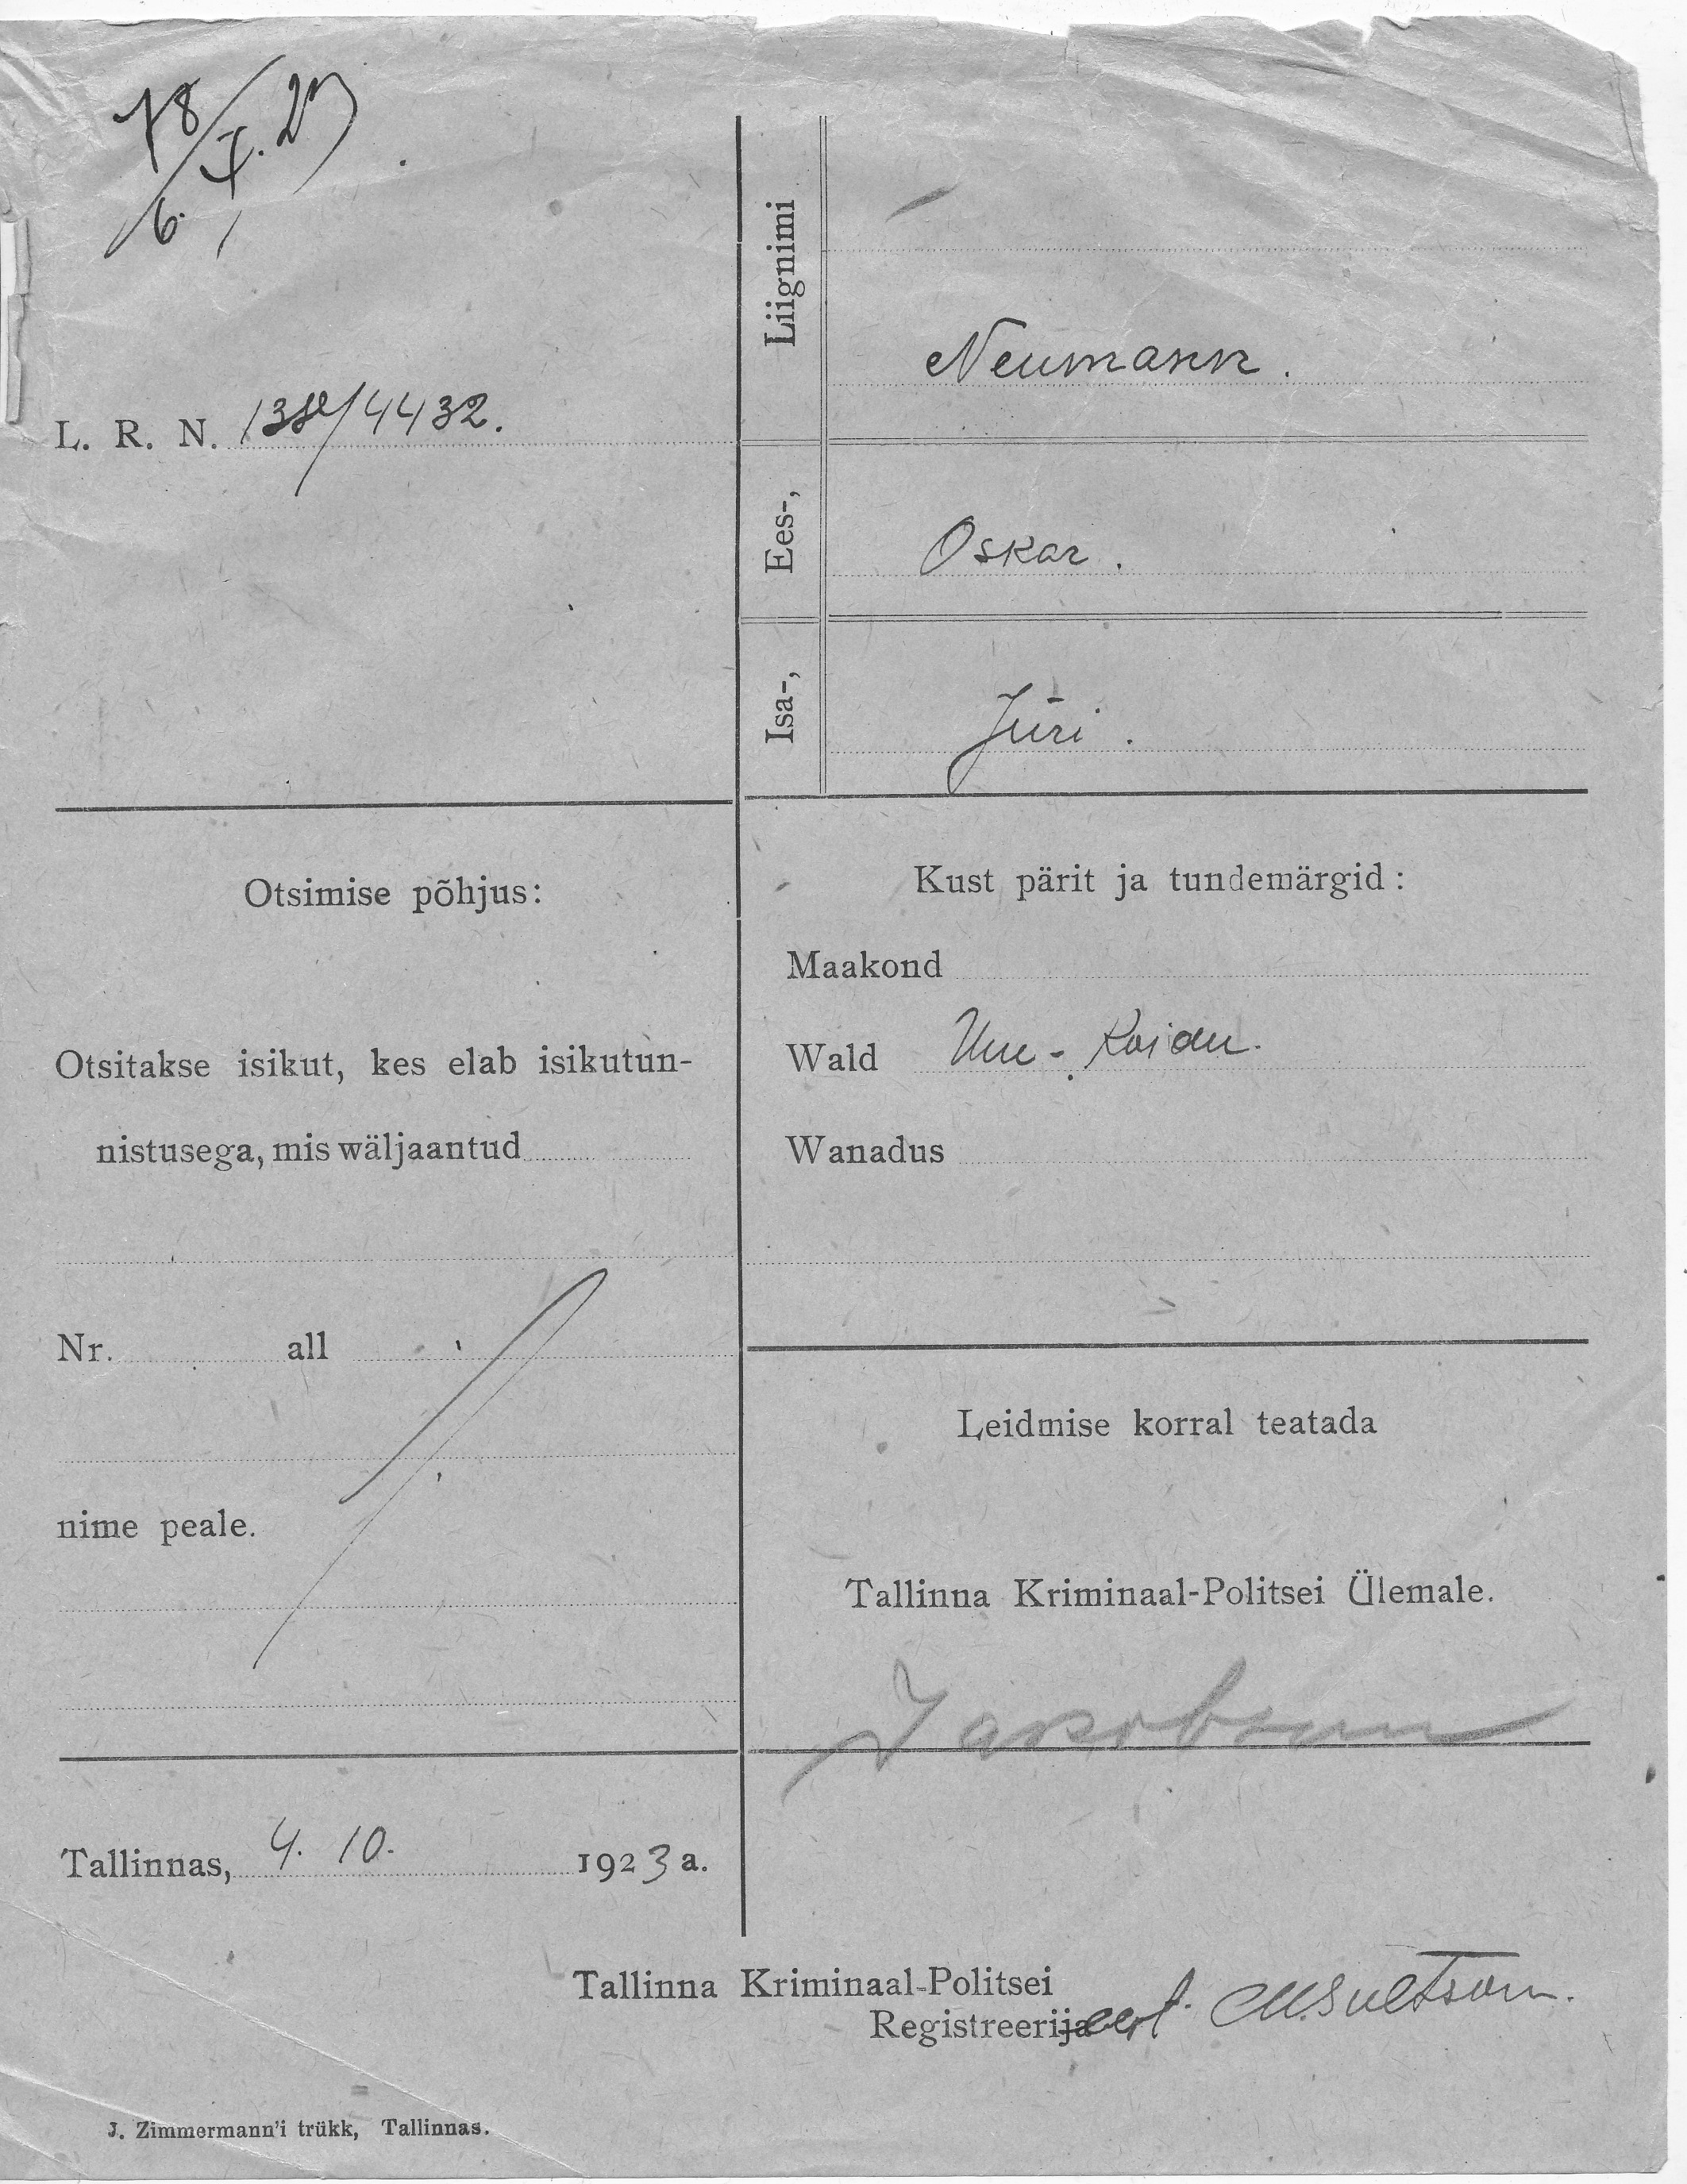 78
6. X. 23
L. R. N. 138/4432.
Liignimi
Neumann.
Ees-,
Oskar.
Isa-,
Jüri.
Otsimise põhjus:
Otsitakse isikut, kes elab isikutun-
nistusega, mis wäljaantud
Nr. all
nime peale.
Tallinnas, 4. 10. 1923 a.
Kust pärit ja tundemärgid:
Maakond
Wald Uue-Koidu.
Wanadus
Leidmise korral teatada
Tallinna Kriminaal-Politsei Ülemale.
Jakobson
Tallinna Kriminaal-Politsei
Registreerija
J. Zimmermann'i trükk, Tallinnas.